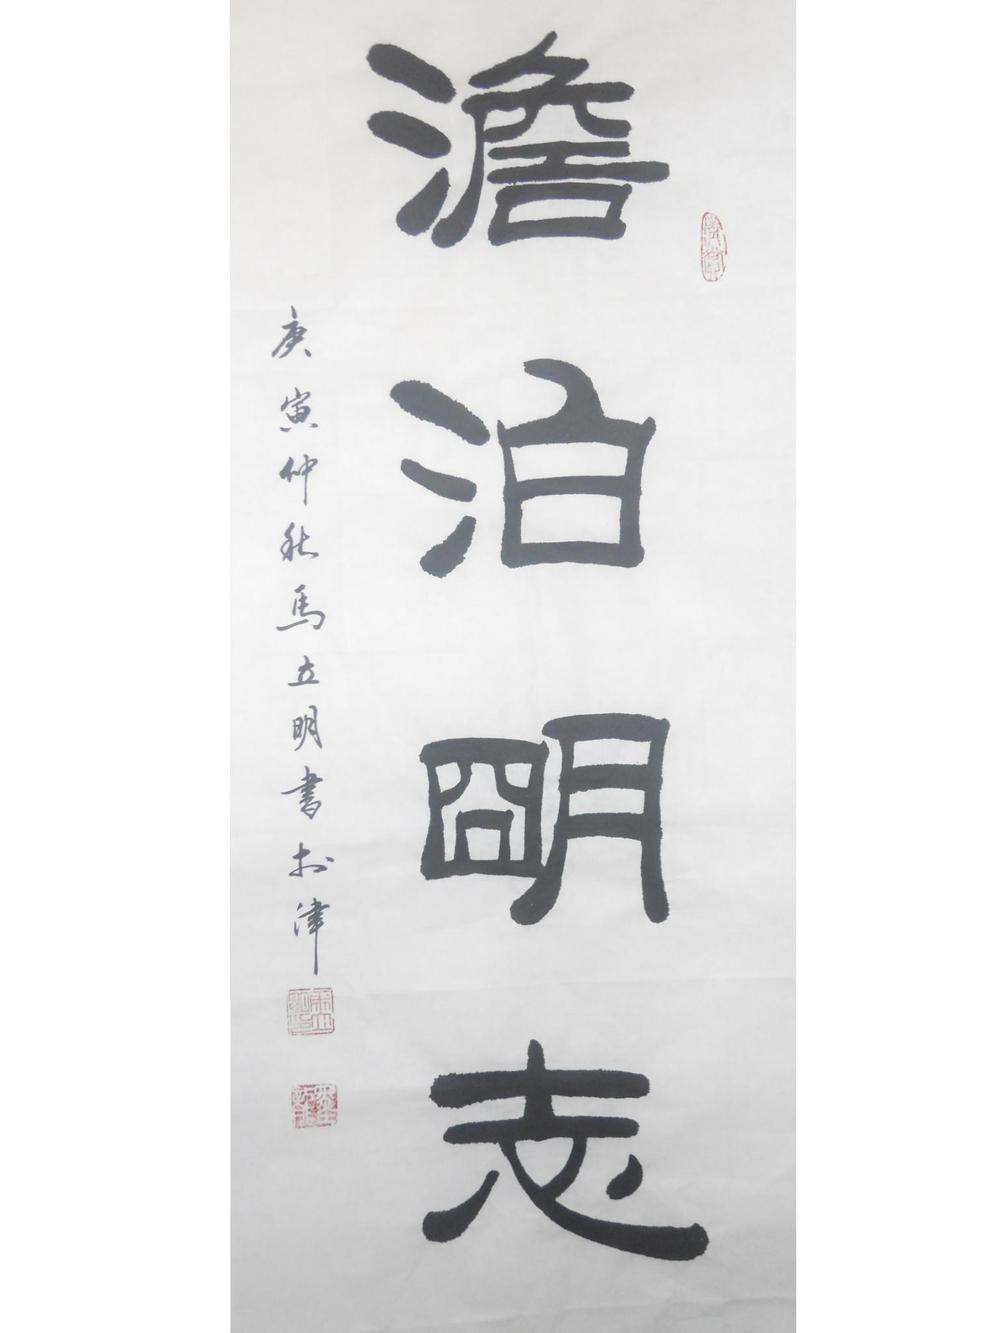 澹泊明志
庚寅仲秋馬立明書於津